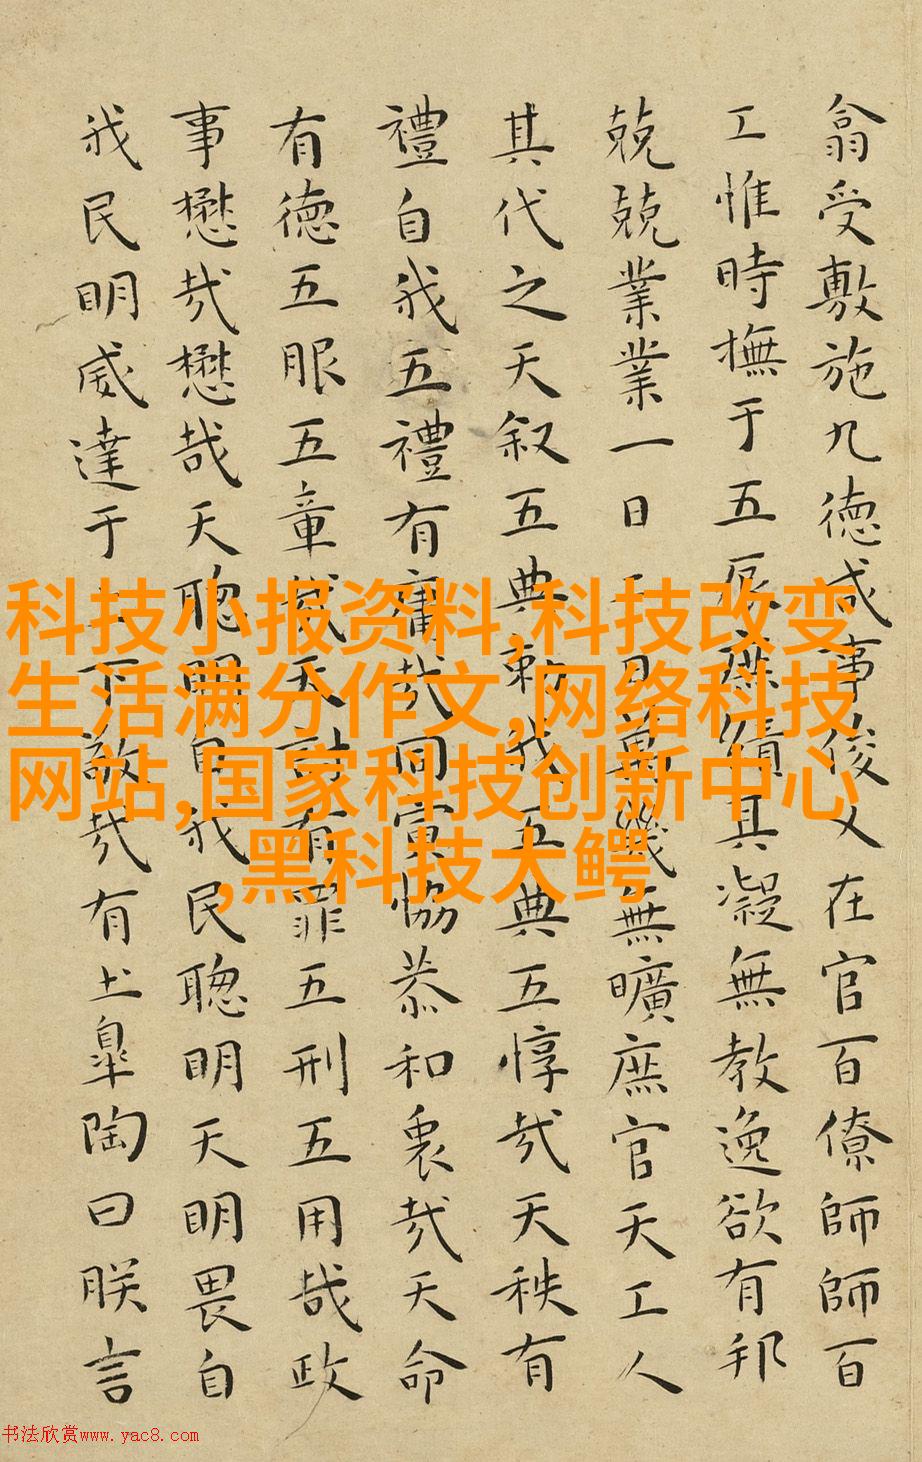 翕受敷施九德咸事俊乂在官百僚師師百
工惟時撫于五辰庶績其凝無教逸欲有邦
兢兢業業一日二日萬幾無曠庶官天工人
其代之天叙五典勑我五典五惇哉天秩有
禮自我五禮有庸哉同寅恊恭和衷哉天命
有德五服五章哉天討有罪五刑五用哉政
事懋哉懋哉天聰明自我民聰明天明畏自
我民明威達于上下敬哉有土皋陶曰朕言
科技小报资料,科技改变
生活满分作文,网络科技
网站,国家科技创新中心
,黑科技大鳄
书法欣赏www.yac8.com